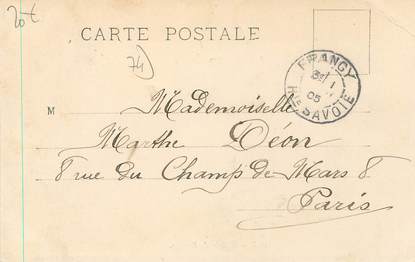 20€
CARTE POSTALE
74
FRANGY
31 1
05
Hte SAVOIE
M Mademoiselle
Marthe Déon
8 rue du Champ de Mars 8
Paris